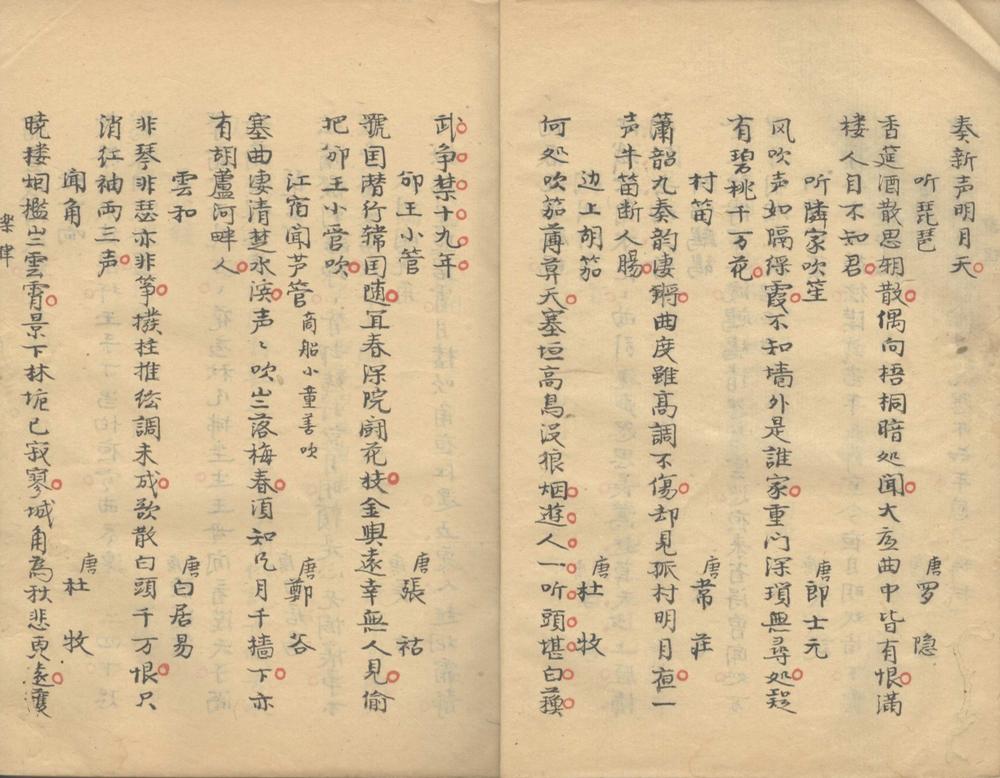 奏新声明月天
听琵琶 唐 罗隐
香筵酒散思朝散偶向梧桐暗处闻大底曲中皆有恨满
楼人自不知君
听隣家吹笙 唐 郎士元
风吹声如隔绿霞不知墙外是誰家重门深琐無尋处疑
有碧桃千万花
村笛 唐 常莊
箫韶九奏韵凄鏘曲度雖高調不傷却见孤村明月夜一
声牛笛断人腸
边上胡笳 唐 杜牧
何处吹笳薄草天塞垣高鳥没狼烟遊人一听頭堪白蘓
武争禁十九年
邠王小管 唐 張祜
虢国潛行韓国随宜春深院闘花枝金輿遠幸無人见偷
把邠王小管吹
江宿闻芦管 商船小童善吹 唐 鄭谷
塞曲凄清楚水滨声〻吹出落梅春須知风月千墙下亦
有胡蘆河畔人
雲和 唐 白居易
非琴非瑟亦非筝撥柱推絃調未成欲散白頭千万恨只
消红袖両三声
闻角 唐 杜牧
暁楼烟檻出雲霄景下林垢已寂寥城角為秋悲更遠護